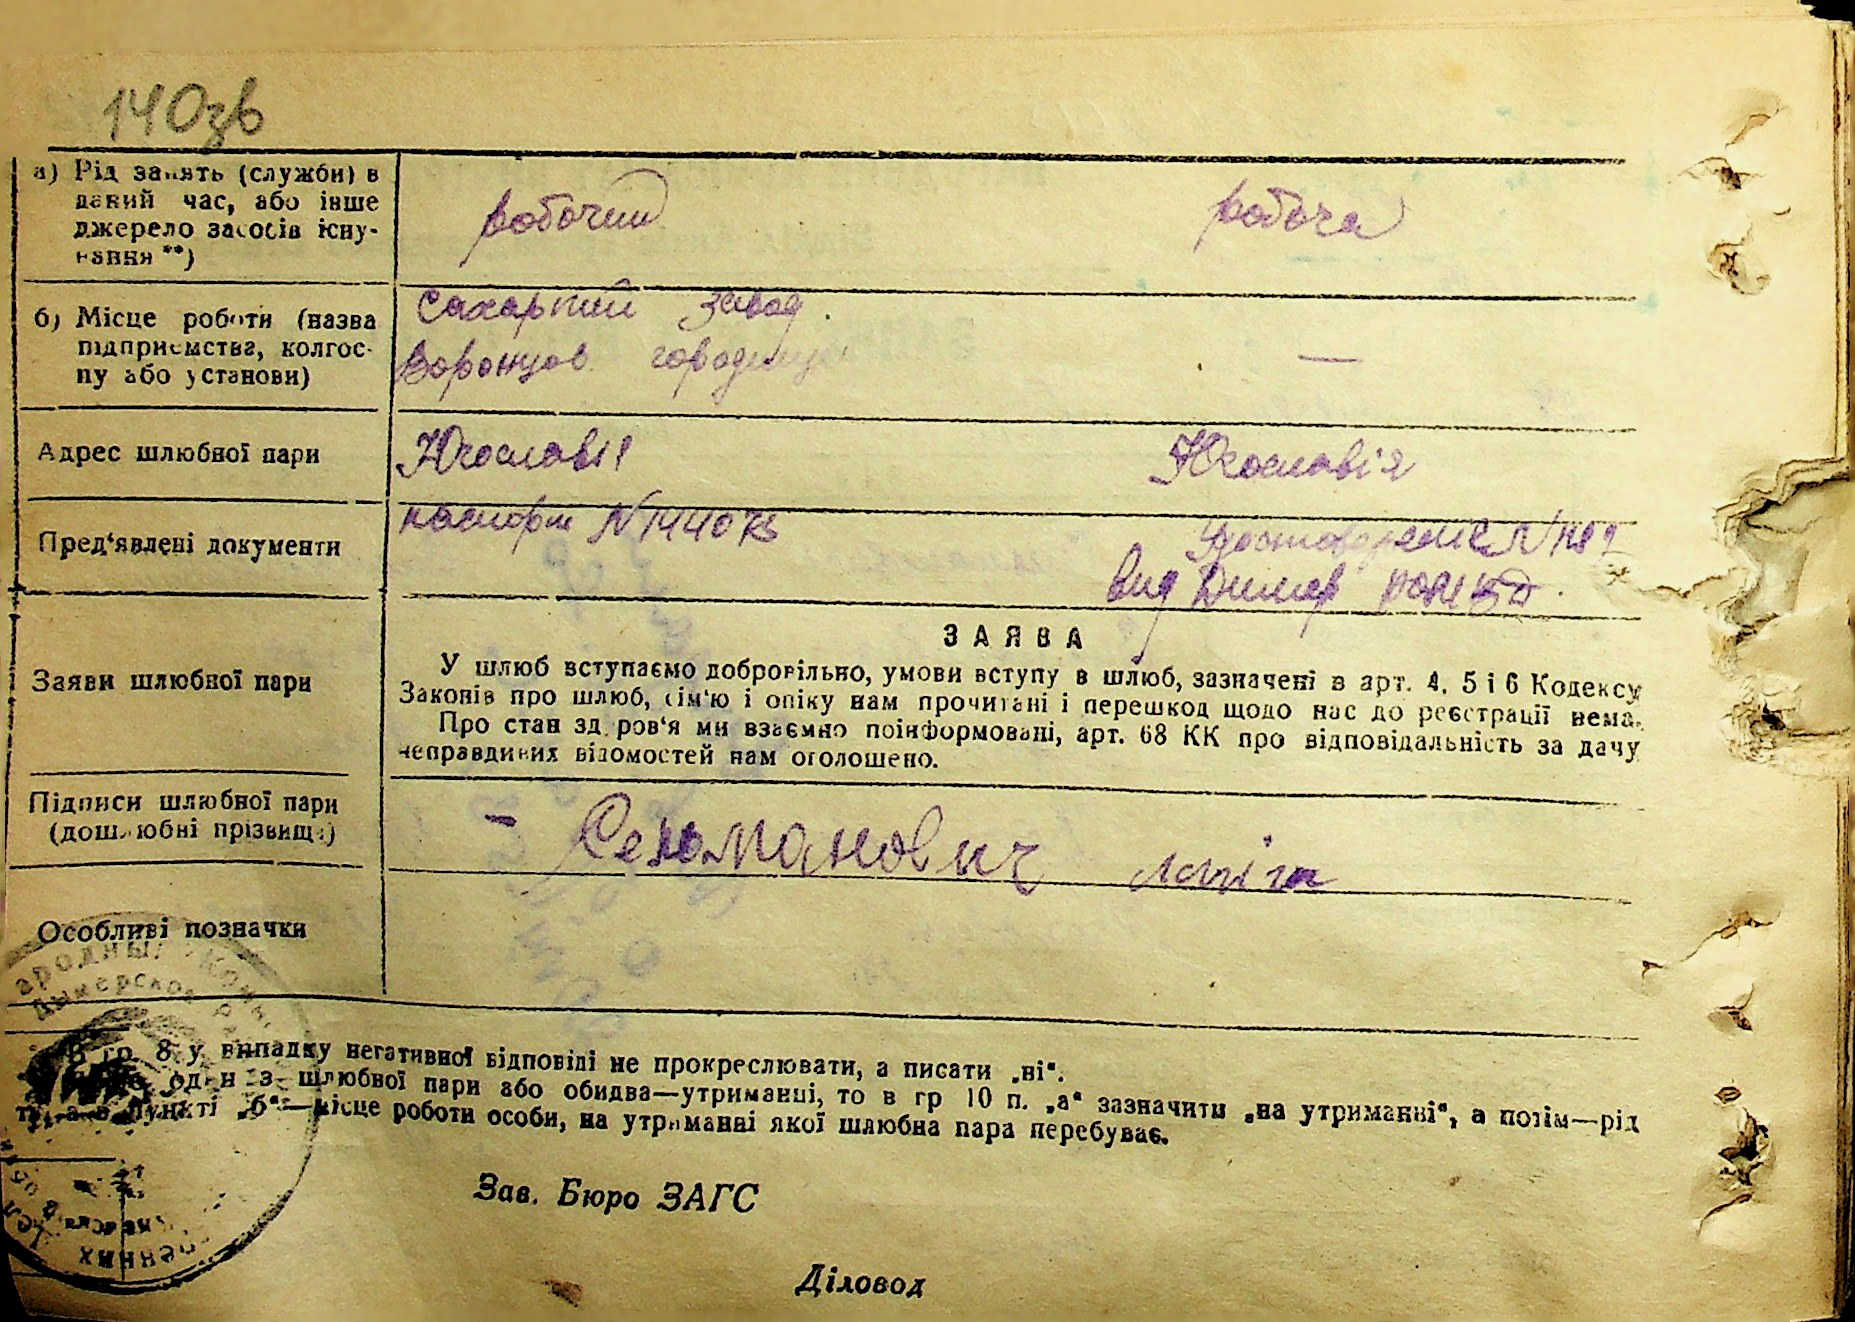 140зв
а) Рід занять (служби) в
даний час, або інше
джерело засобів існу-
вання **)
робочий
робоча
б) Місце роботи (назва
підприємства, колгос-
пу або установи)
Сахарний завод
Воронцов городище
—
Адрес шлюбної пари
Югославія
Югославія
Пред'явлені документи
паспорт N
вид Димер
ЗАЯВА
Заяви шлюбної пари
У шлюб вступаємо добровільно, умови вступу в шлюб, зазначені в арт. 4, 5 і 6 Кодексу
Законів про шлюб, сім'ю і опіку нам прочитані і перешкод щодо нас до реєстрації нема.
Про стан здоров'я ми взаємно поінформовані, арт. 68 КК про відповідальність за дачу
неправдивих відомостей нам оголошено.
Підписи шлюбної пари
(дошлюбні прізвища)
Селоманович
Особливі позначки
В гр. 8 у випадку негативної відповіді не прокреслювати, а писати „ні“.
один з шлюбної пари або обидва—утриманці, то в гр 10 п. „а“ зазначити „на утриманні“, а потім—рід
а в пункті „б“—місце роботи особи, на утриманні якої шлюбна пара перебуває.
Зав. Бюро ЗАГС
Діловод